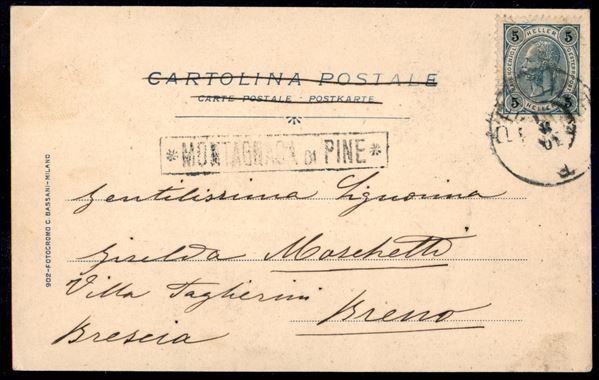 CARTOLINA POSTALE
CARTE POSTALE - POSTKARTE
5 HELLER 5
5 HELLER 5
* MONTAGNAGA DI PINE *
Gentilissima Signorina
Giselda Moschetti
Villa Taglierini
Breno
Brescia
902-FOTOCROMO C. BASSANI-MILANO